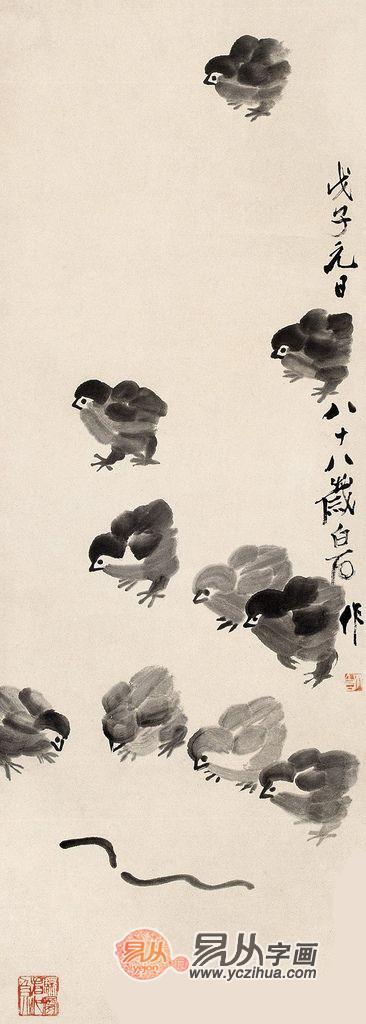 戊子元日
八十八歲白石
作
易从
yejon
易从字画
www.yczihua.com